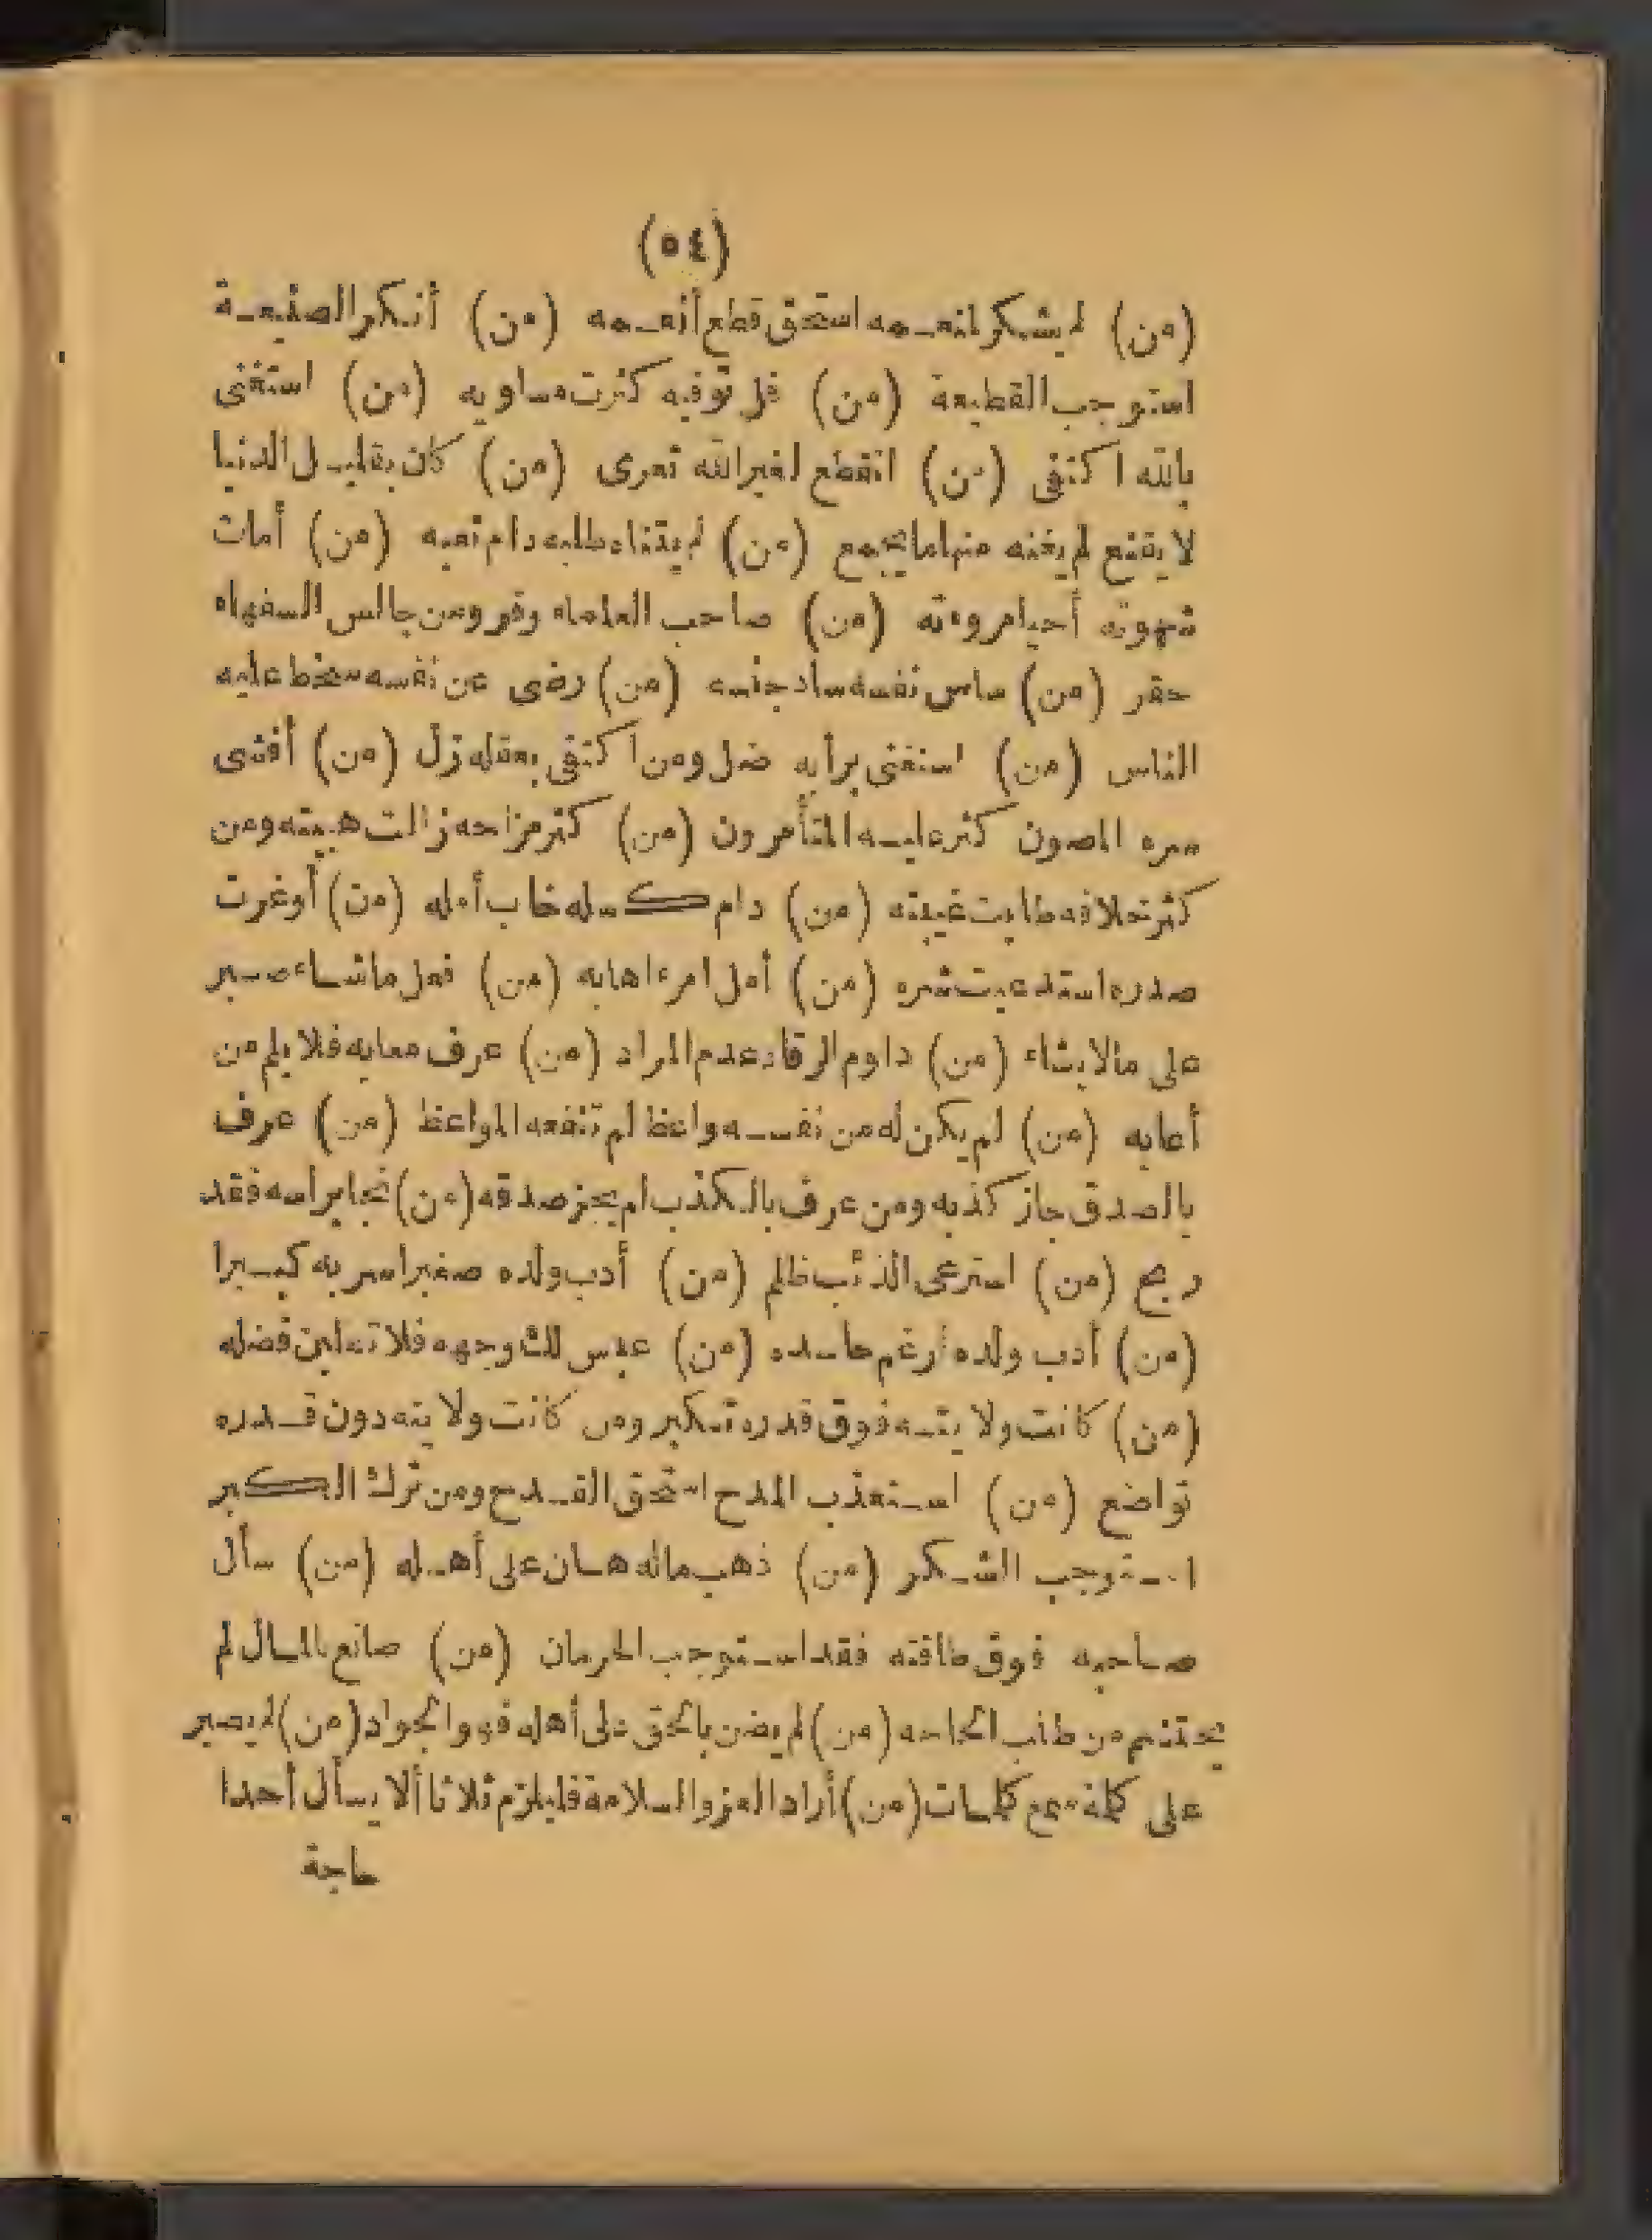 (٥٤)
(من) لم يشكر لمنعمه استحق قطع أنعمه (من) أنكر الصنيعة
استوجب القطيعة (من) قل توقيه كثرت مساويه (من) استغنى
بالله اكتفى (من) انقطع لغير الله تعرى (من) كان بقليل الدنيا
لا يقنع لم يغنه منها ما يجمع (من) لم يتناه طلبه دام تعبه (من) أمات
شهوته أحيا مروءته (من) صاحب العلماء وقر ومن جالس السفهاء
حقر (من) ساس نفسه ساد جنسه (من) رضى عن نفسه سخط عليه
الناس (من) استغنى برأيه ضل ومن اكتفى بعقله زل (من) أفشى
سره المصون كثر عليه المتأمرون (من) كثر مزاحه زالت هيبته ومن
كثر خلافه طابت غيبته (من) دام كسله خاب أمله (من) أوغرت
صدره استدعيت شره (من) أمل امرءا هابه (من) فعل ما شاء صبر
على ما لا يشاء (من) داوم الرقاد عدم المراد (من) عرف معايبه فلا يلم من
أعابه (من) لم يكن له من نفسه واعظ لم تنفعه المواعظ (من) عرف
بالصدق جاز كذبه ومن عرف بالكذب لم يجز صدقه (من) نجا برأسه فقد
ربح (من) استرعى الذئب ظلم (من) أدب ولده صغيرا سر به كبيرا
(من) أدب ولده أرغم حاسده (من) عبس لك وجهه فلا فضله
(من) كانت ولايته فوق قدره تكبر ومن كانت ولايته دون قدره
تواضع (من) استعذب المدح استحق القدح ومن ترك الكبر
استوجب الشكر (من) ذهب ماله هان على أهله (من) سأل
صاحبه فوق طاقته فقد استوجب الحرمان (من) صانع بالمال لم
يحتشم من طلب الحاجه (من) لم يضن بالحق على أهله فهو الجواد (من) لم يصبر
على كلمة سمع كلمات (من) أراد العز والسلامة فليلزم ثلاثا ألا يسأل أحدا
حاجة